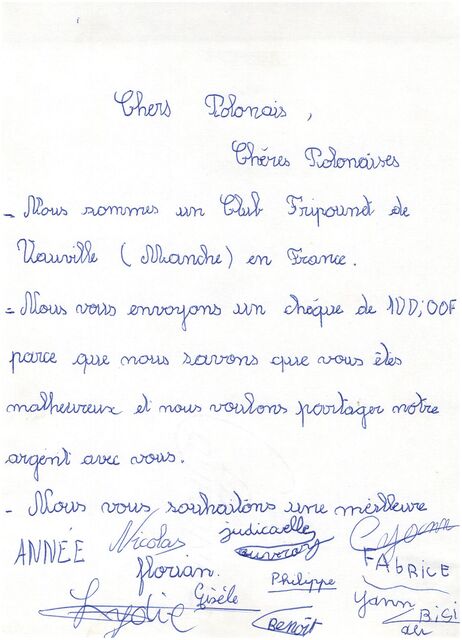 Chers Polonais,
Chères Polonaises
- Nous sommes un Club Fripounet de
Vauville (Manche) en France.
- Nous vous envoyons un chèque de 100,00F
parce que nous savons que vous êtes
malheureux et nous voulons partager notre
argent avec vous.
- Nous vous souhaitons une meilleure
ANNÉE Nicolas judicaelle
florian. FAbRICE
Philippe
Gisèle Yann
Lydie BENOÎT